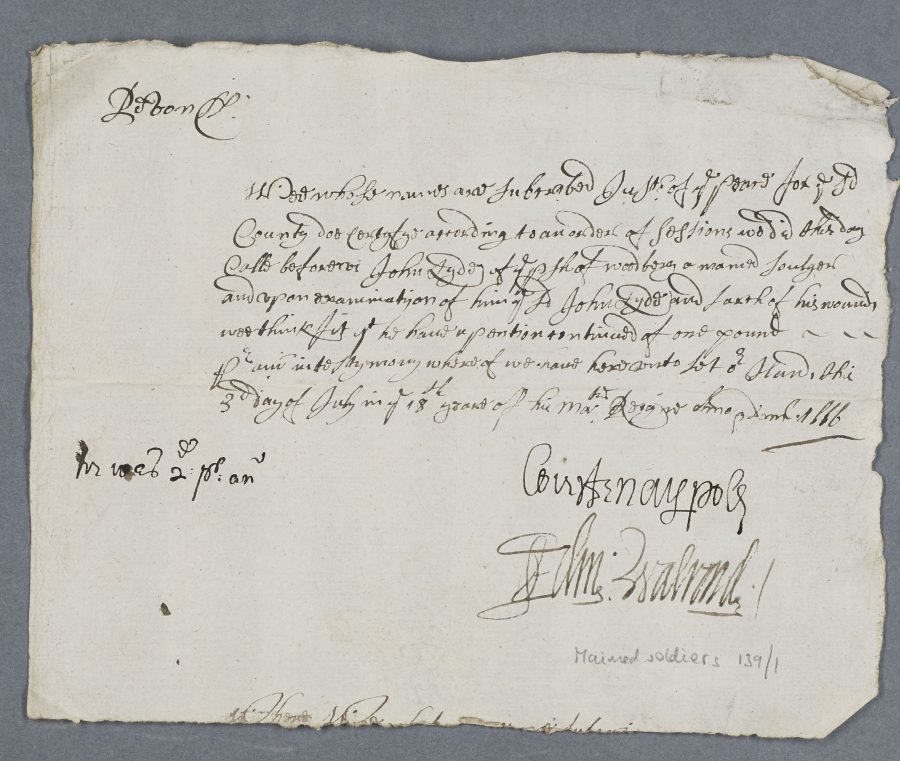 Devon ss.
Wee whose names are subscribed Justs. of ye peace for ye sd
County doe Certyfye according to an order of Sessions wee did this day
Calle before us John Tyde of ye psh of woodbery a maimed soulger
and upon examination of him ye sd John Tyde and sarch of his wounds
wee think fit yt he have a pention continued of one pound
pr ann in testymony whereof we have hereunto set or Hands this
3d day of July in ye 18th yeare of his Matis Reigne Anno Domi 1666
he was 2 pr: ann
Courtenay pole
Edm: Walrond
Maimed soldiers 139/1